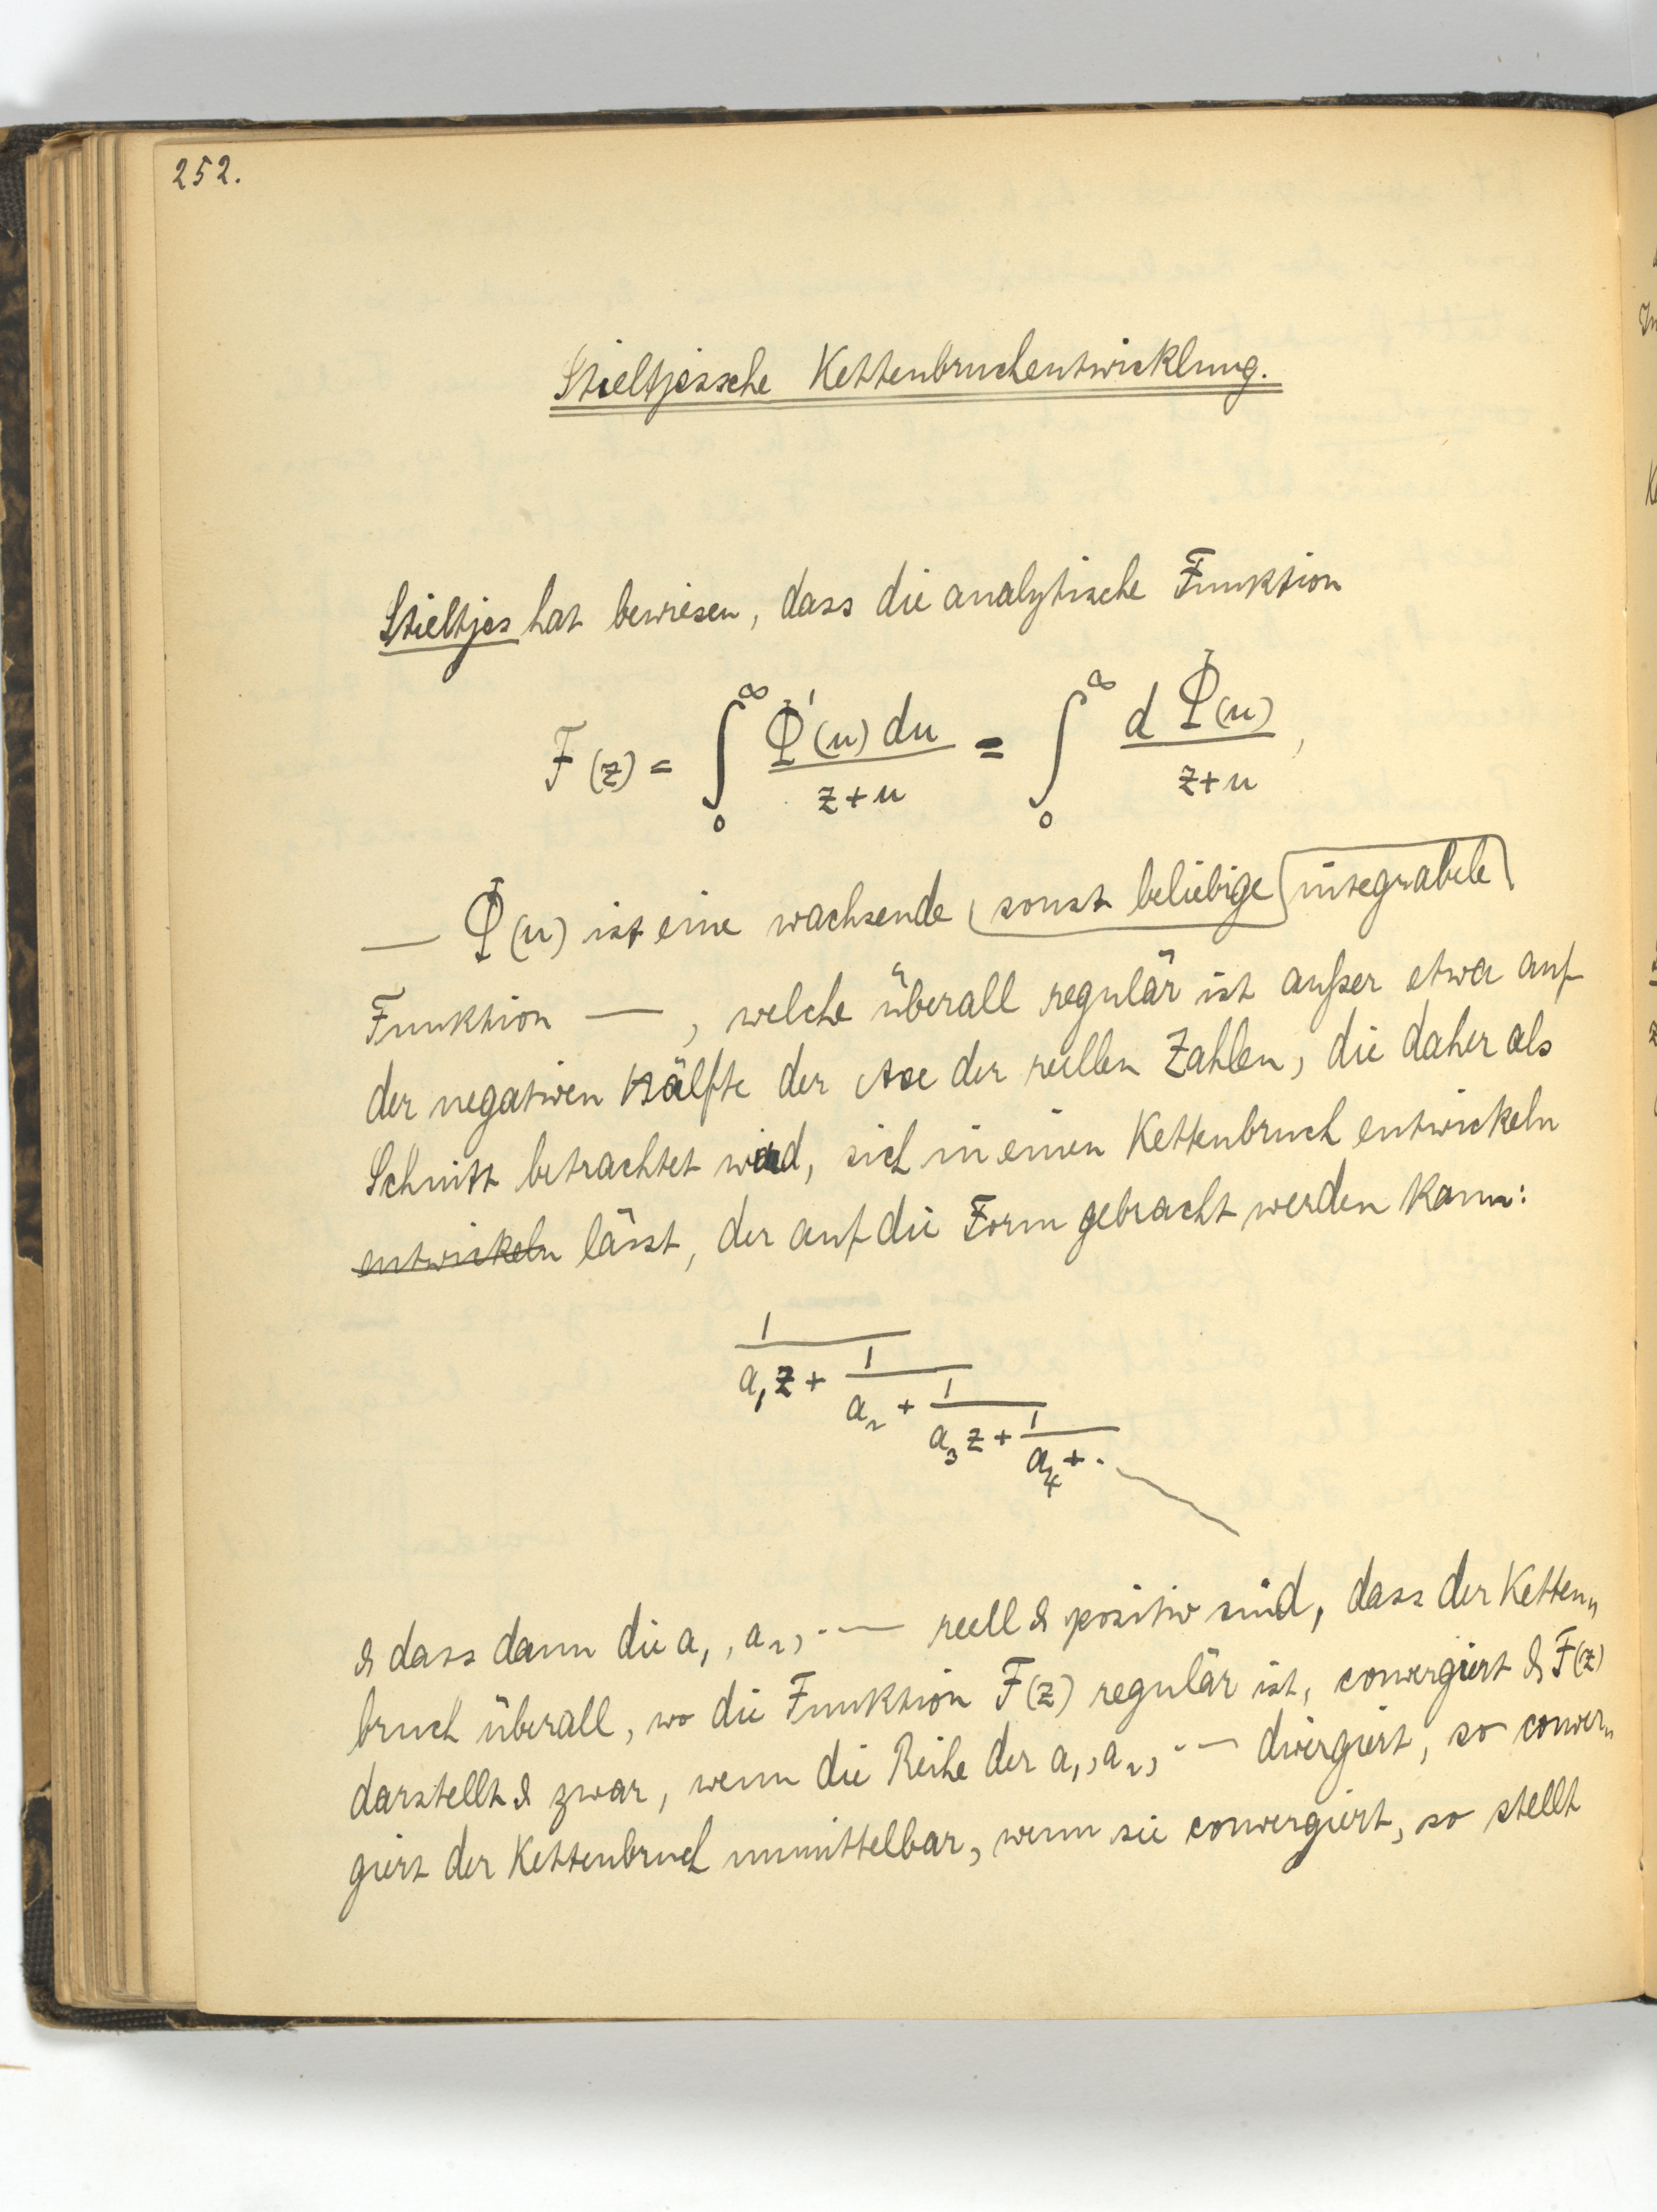 252.
Stieltjessche Kettenbruchentwicklung.
Stieltjes hat bewiesen, dass die analytische Funktion
F(z) = ∫₀^∞ Φ'(u) du / (z+u) = ∫₀^∞ d Φ(u) / (z+u),
— Φ(u) ist eine wachsende sonst beliebige integrabele
Funktion —, welche überall regulär ist außer etwa auf
der negativen Hälfte der Axe der reellen Zahlen, die daher als
Schnitt betrachtet wird, sich in einen Kettenbruch entwickeln
entwickeln lässt, der auf die Form gebracht werden kann:
1
a₁z + 1
a₂ + 1
a₃z + 1
a₄ + ·
& dass dann die a₁, a₂, ·— reell & positiv sind, dass der Ketten„
bruch überall, wo die Funktion F(z) regulär ist, convergiert & F(z)
darstellt & zwar, wenn die Reihe der a₁, a₂, ·— divergiert, so conver„
giert der Kettenbruch unmittelbar, wenn sie convergiert, so stellt